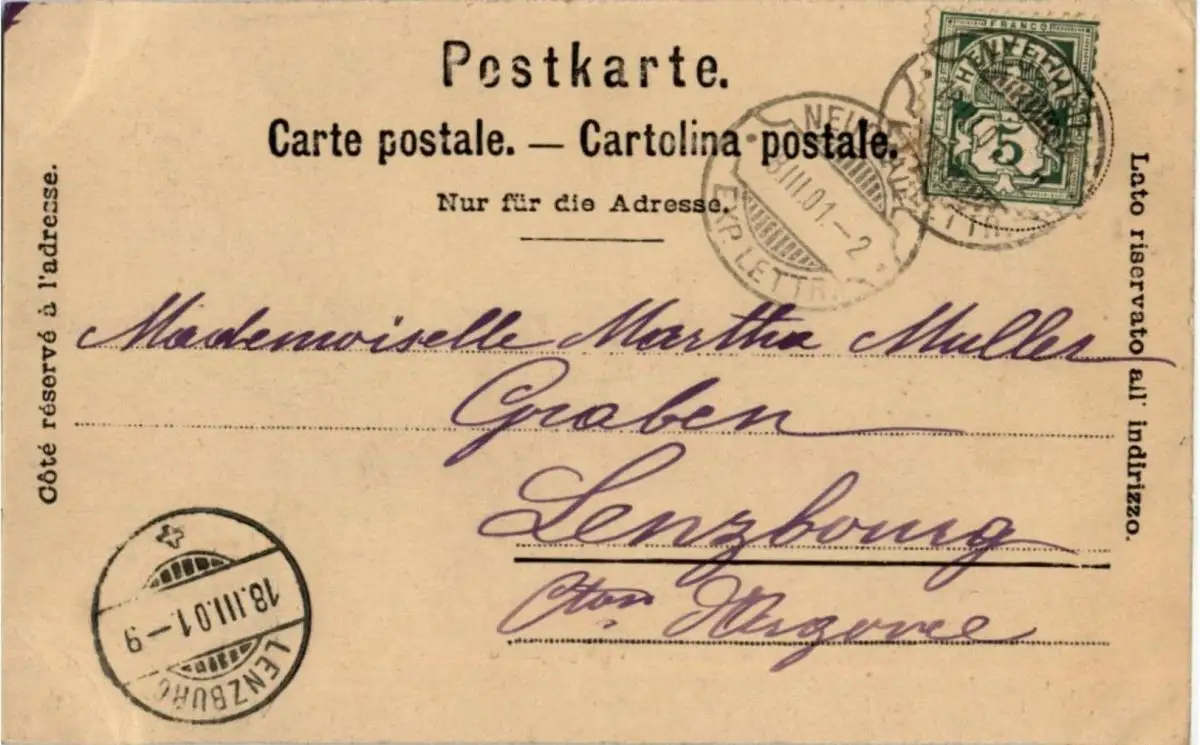 Postkarte.
Carte postale. — Cartolina postale.
Nur für die Adresse.
Côté réservé à l'adresse.
Lato riservato all' indirizzo.
FRANCO
HELVETIA
5
III.01.–2
EXP. LETTR.
Mademoiselle Martha Muller
Graben
Lenzbourg
Cton Argovie
18.III.01.–9
LENZBURG